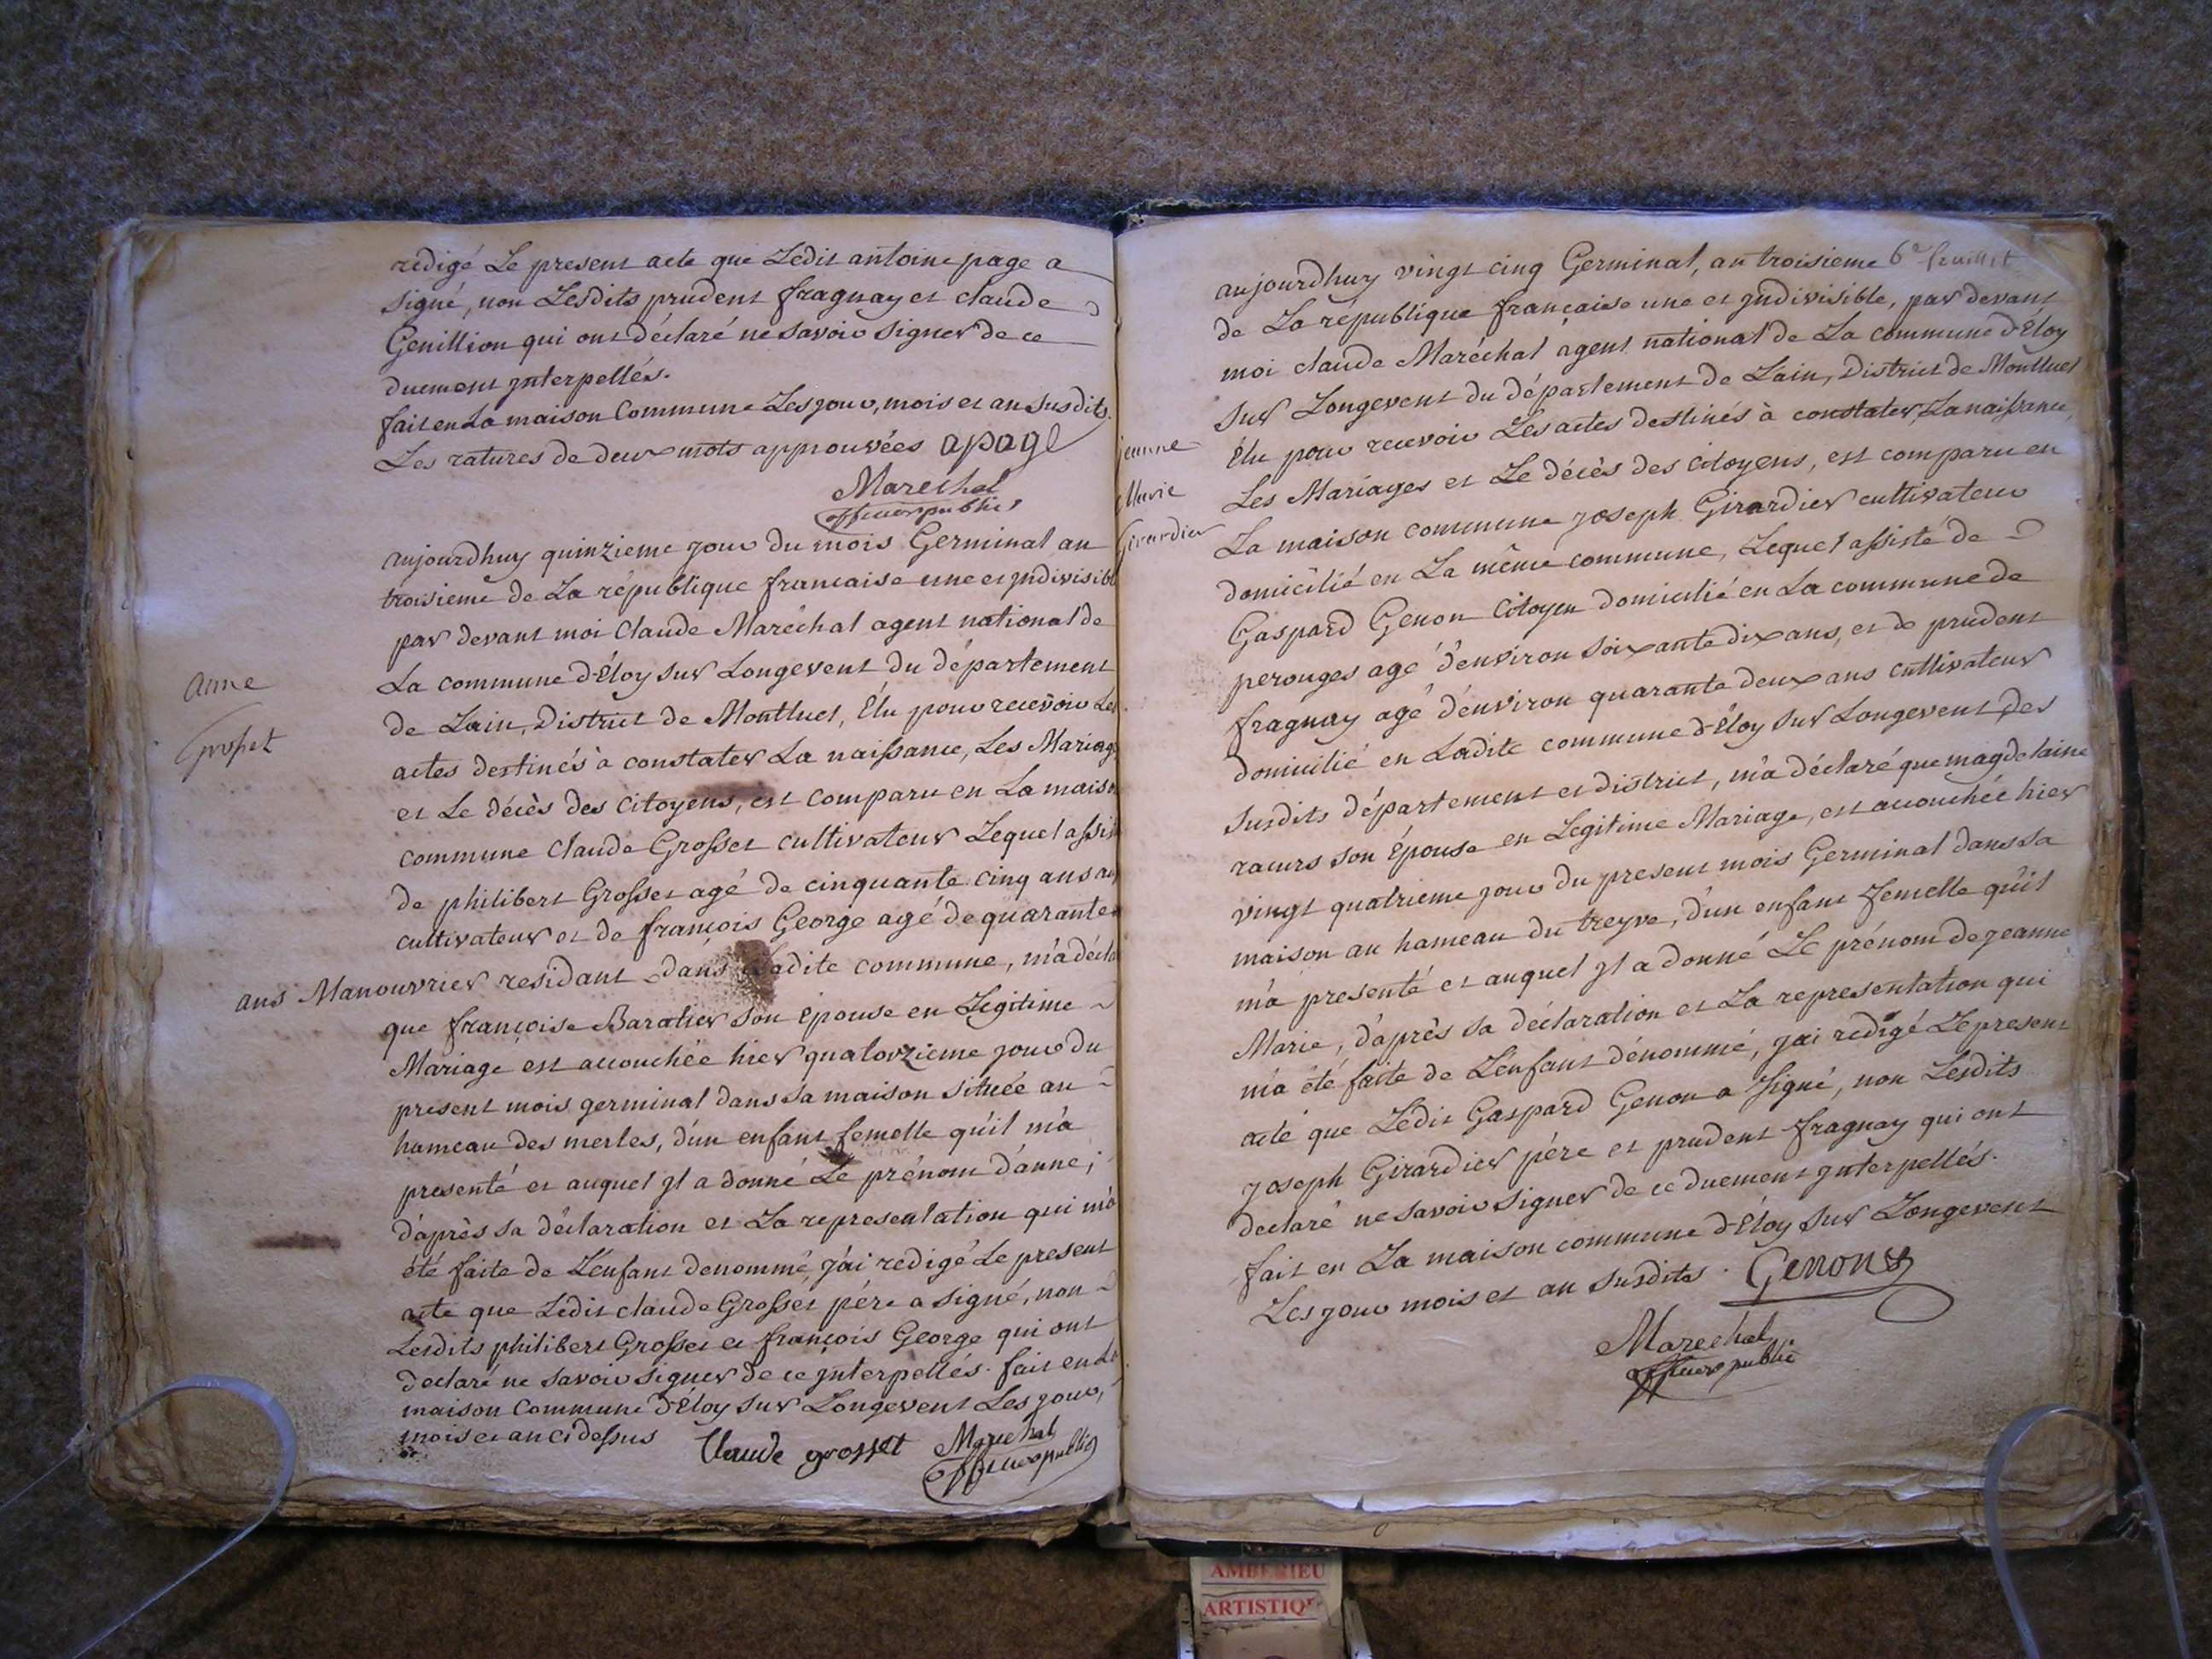 redigé Le present acte que Ledit antoine page a
signé, non Lesdits prudent fragnay et claude
Genillion qui ont déclaré ne savoir signer de ce
duement jnterpellés.
fait en La maison Commune Les jour, mois et an susdits.
Les ratures de deux mots approuvées apage
Marechal
officier public
anne
Grosset
aujourdhuy quinzieme jour du mois Germinal an
troisieme de La république francaise une et jndivisible
par devant moi Claude Maréchal agent national de
La commune d'Eloy sur Longevent du département
de Lain, District de Montluel, Élu pour recevoir Les
actes destinés à constater La naissance, Les Mariag
et Le décès des Citoyens, est comparu en La maiso
commune Claude Grosset cultivateur Lequel assis
de philibert Grosset agé de cinquante cinq ans au
cultivateur et de françois George agé de quarante
ans Manouvrier residant dans Ladite commune, m'a décla
que françoise Baratier son épouse en Legitime
Mariage est accouchée hier quatorzieme jour du
present mois germinal dans sa maison située au
hameau des merles, d'un enfant femelle qu'il m'a
presenté et auquel jl a donné Le prénom d'anne;
d'après sa déclaration et La representation qui m'a
été faite de L'enfant denommé, j'ai redigé Le present
acte que Ledit claude Grosset pére a signé, non
Lesdits philibert Grosset et françois George qui ont
declaré ne savoir signer de ce jnterpellés. fait en La
maison Commune d'Eloy sur Longevent Les jour,
mois et an ci dessus Claude grosset Marechal
officier public
6e feuillet
jeanne
Marie
Girardier
aujourdhuy vingt cinq Germinal, an troisieme
de La republique française une et jndivisible, par devant
moi claude Maréchal agent national de La commune d'Éloy
sur Longevent du département de Lain, District de Montluel
Élu pour recevoir Les actes destinés à constater La naissance,
Les Mariages et Le décès des Citoyens, est comparu en
La maison commune joseph Girardier cultivateur
domicilié en La même commune, Lequel assisté de
Gaspard Genon Citoyen domicilié en La commune de
perouges agé d'environ soixante dix ans, et de prudent
fragnay agé d'environ quarante deux ans cultivateur
domicilié en Ladite commune d'Eloy sur Longevent des
susdits département et district, m'a déclaré que magdelaine
racurs son Épouse en Legitime Mariage, est accouchée hier
vingt quatrieme jour du present mois Germinal dans sa
maison au hameau du treyve, d'un enfant femelle qu'il
m'a presenté et auquel jl a donné Le prénom de jeanne
Marie, d'après sa déclaration et La representation qui
m'a été faite de L'enfant dénommé, j'ai redigé Le present
acte que Ledit Gaspard Genon a signé, non Lesdits
joseph Girardier pére et prudent fragnay qui ont
declaré ne savoir signer de ce duement jnterpellés.
fait en La maison commune d'Éloy sur Longevent
Les jour mois et an susdits. Genon
Marechal
officier public
AMBERIEU
ARTISTIQ